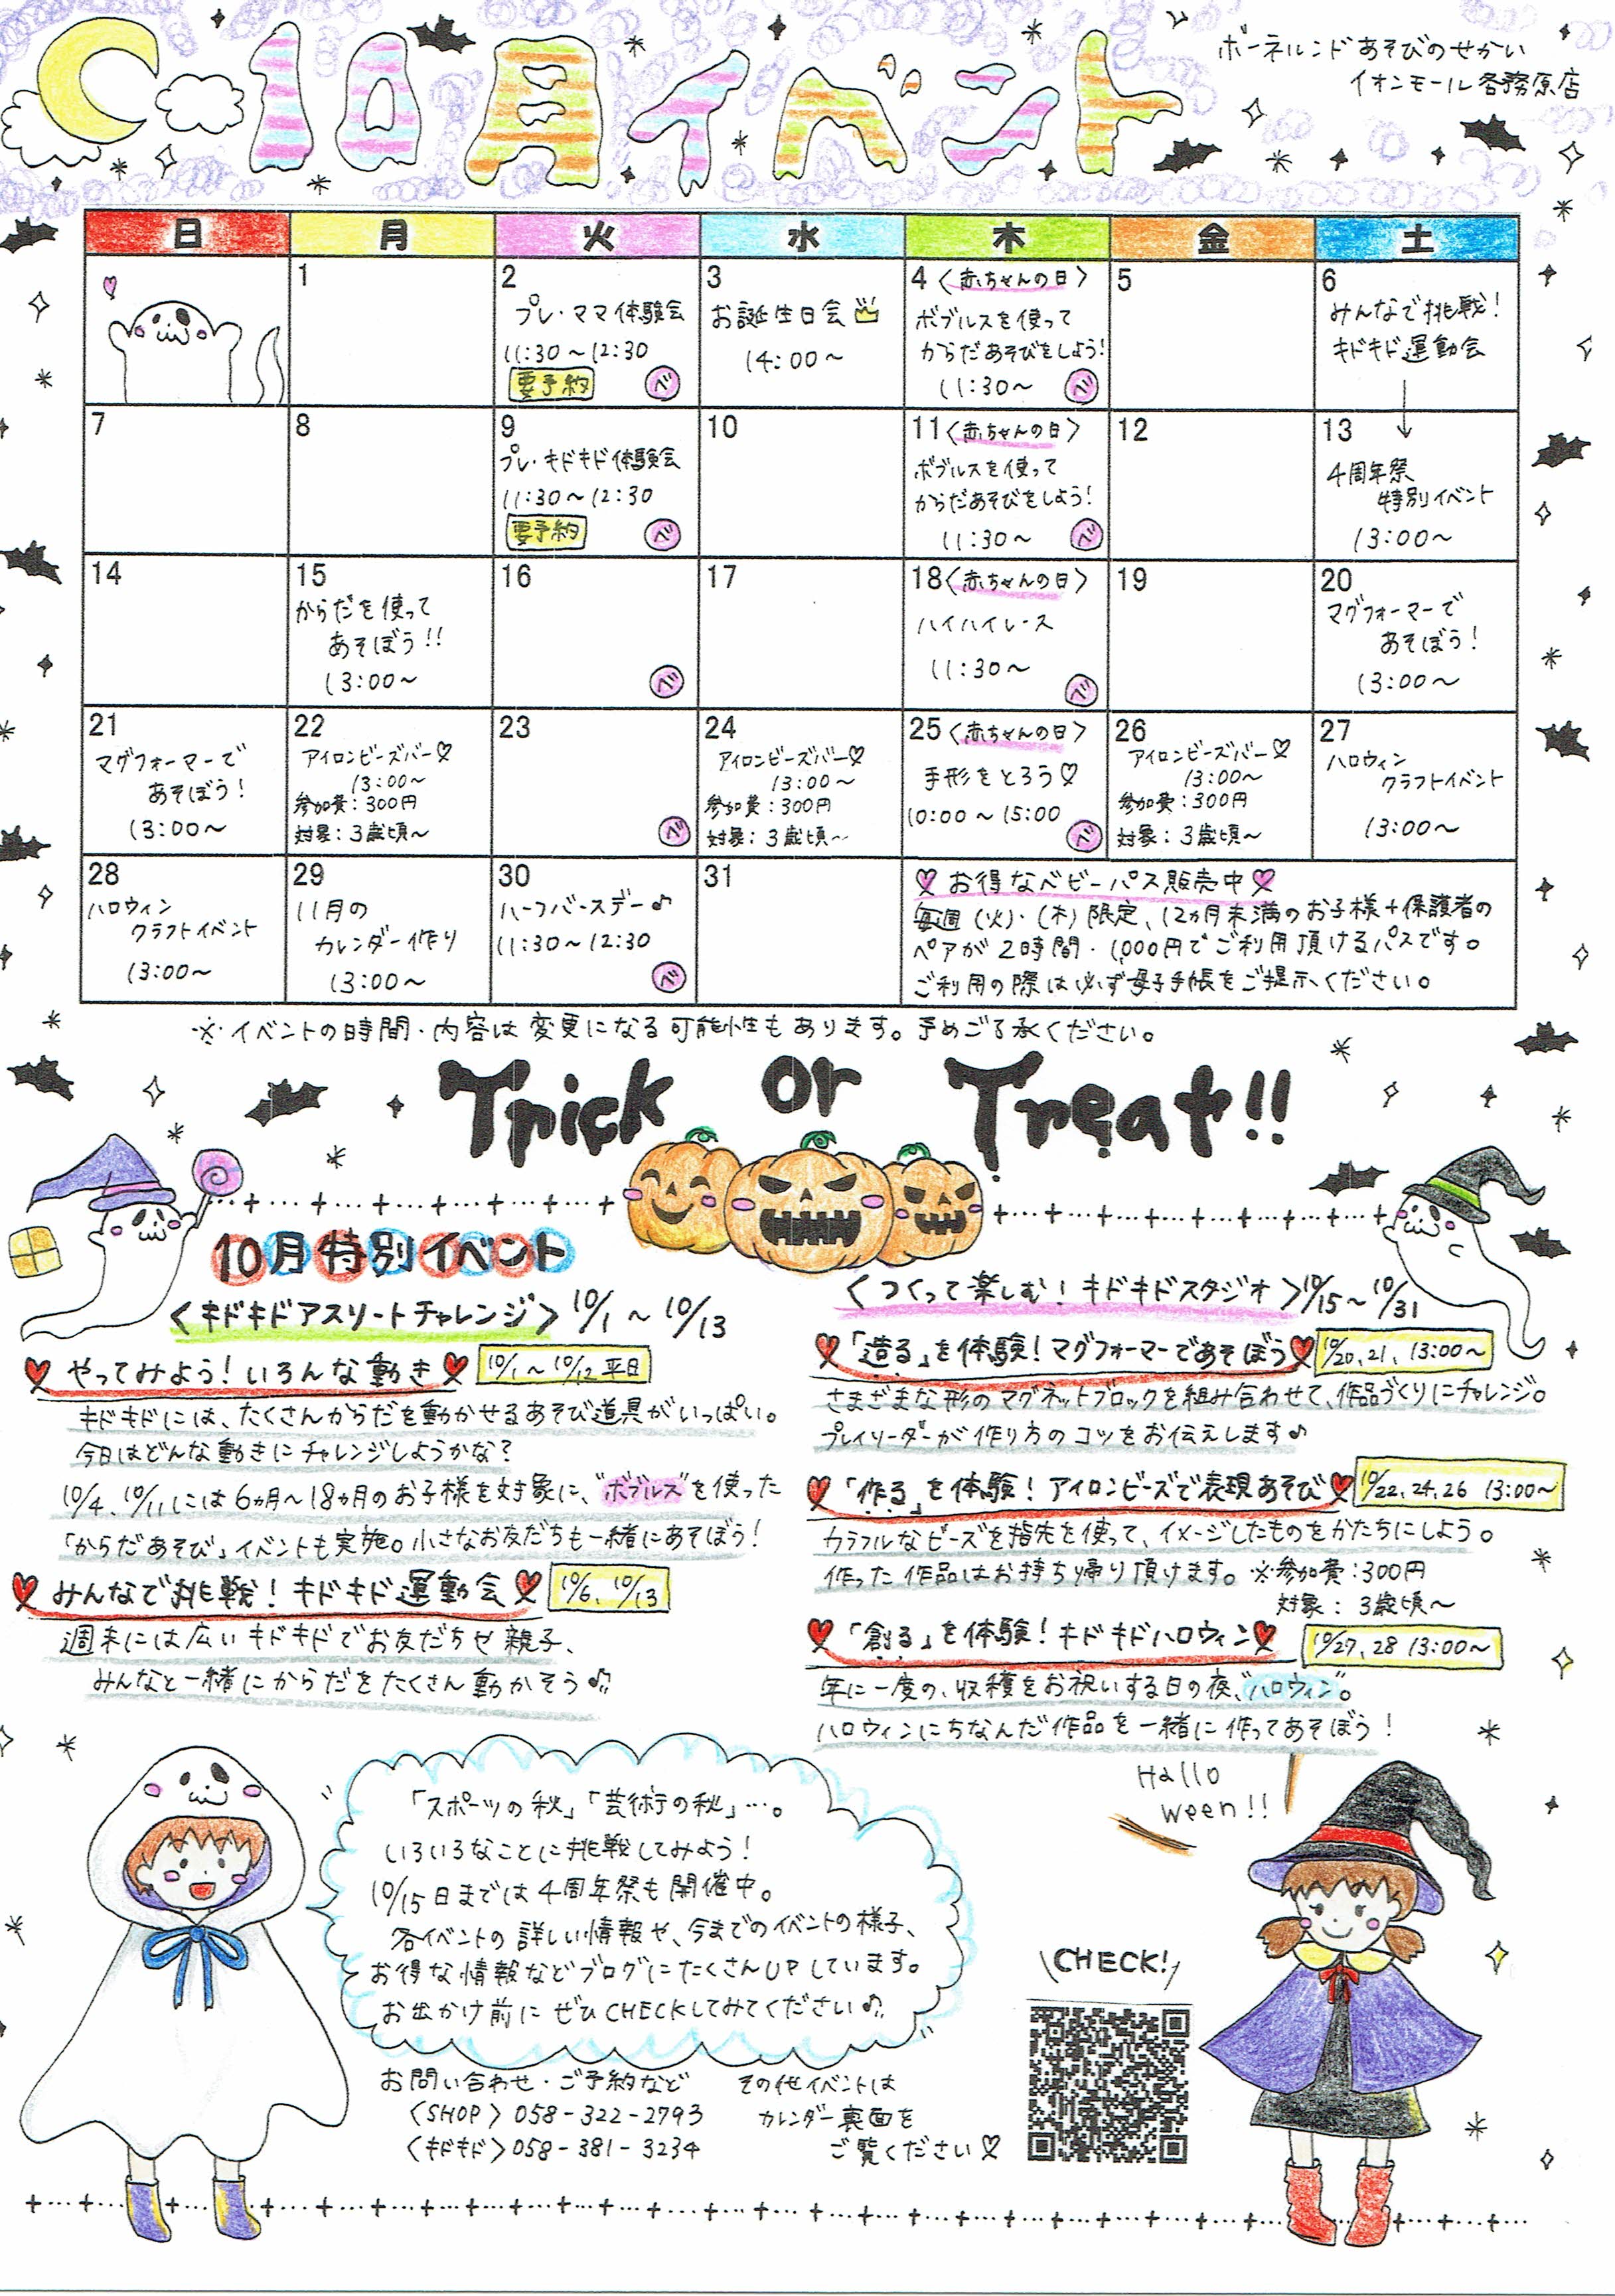 10月イベント
ボーネルンドあそびのせかい
イオンモール各務原店
日 月 火 水 木 金 土
1
2
プレ・ママ体験会
11:30～12:30
要予約 ベ
3
お誕生日会
14:00～
4〈赤ちゃんの日〉
ボブルスを使って
からだあそびをしよう!
11:30～ ベ
5
6
みんなで挑戦!
キドキド運動会
7
8
9
プレ・キドキド体験会
11:30～12:30
要予約 ベ
10
11〈赤ちゃんの日〉
ボブルスを使って
からだあそびをしよう!
11:30～ ベ
12
13
4周年祭
特別イベント
13:00～
14
15
からだを使って
あそぼう!!
13:00～
16
ベ
17
18〈赤ちゃんの日〉
ハイハイレース
11:30～
ベ
19
20
マグフォーマーで
あそぼう!
13:00～
21
マグフォーマーで
あそぼう!
13:00～
22
アイロンビーズバー♡
13:00～
参加費:300円
対象:3歳頃～
23
ベ
24
アイロンビーズバー♡
13:00～
参加費:300円
対象:3歳頃～
25〈赤ちゃんの日〉
手形をとろう♡
10:00～15:00
ベ
26
アイロンビーズバー♡
13:00～
参加費:300円
対象:3歳頃～
27
ハロウィン
クラフトイベント
13:00～
28
ハロウィン
クラフトイベント
13:00～
29
11月の
カレンダー作り
13:00～
30
ハーフバースデー♪
11:30～12:30
ベ
31
♡お得なベビーパス販売中♡
毎週(火)・(木)限定、12ヵ月未満のお子様+保護者の
ペアが2時間・1,000円でご利用頂けるパスです。
ご利用の際は必ず母子手帳をご提示ください。
※イベントの時間・内容は変更になる可能性もあります。予めご了承ください。
Trick or Treat!!
10月特別イベント
〈キドキドアスリートチャレンジ〉10/1～10/13
♥やってみよう!いろんな動き♥ 10/1～10/12 平日
キドキドには、たくさんからだを動かせるあそび道具がいっぱい。
今日はどんな動きにチャレンジしようかな?
10/4、10/11には6ヵ月～18ヵ月のお子様を対象に、"ボブルス"を使った
「からだあそび」イベントも実施。小さなお友だちも一緒にあそぼう!
♥みんなで挑戦!キドキド運動会♥ 10/6、10/13
週末には広いキドキドでお友だちや親子、
みんなと一緒にからだをたくさん動かそう♫
〈つくって楽しむ!キドキドスタジオ〉10/15～10/31
♥「造る」を体験!マグフォーマーであそぼう♥ 10/20,21、13:00～
さまざまな形のマグネットブロックを組み合わせて、作品づくりにチャレンジ。
プレイリーダーが作り方のコツをお伝えします♪
♥「作る」を体験!アイロンビーズで表現あそび♥ 10/22,24,26 13:00～
カラフルなビーズを指先を使って、イメージしたものをかたちにしよう。
作った作品はお持ち帰り頂けます。※参加費:300円
対象:3歳頃～
♥「創る」を体験!キドキドハロウィン♥ 10/27,28 13:00～
年に一度の、収穫をお祝いする日の夜、"ハロウィン"。
ハロウィンにちなんだ作品を一緒に作ってあそぼう!
「スポーツの秋」「芸術の秋」…。
いろいろなことに挑戦してみよう!
10/15日までは4周年祭も開催中。
各イベントの詳しい情報や、今までのイベントの様子、
お得な情報などブログにたくさんUPしています。
お出かけ前にぜひCHECKしてみてください♫
Hallo
ween!!
CHECK!
お問い合わせ・ご予約など
〈SHOP〉058-322-2793
〈キドキド〉058-381-3234
その他イベントは
カレンダー裏面を
ご覧ください♡